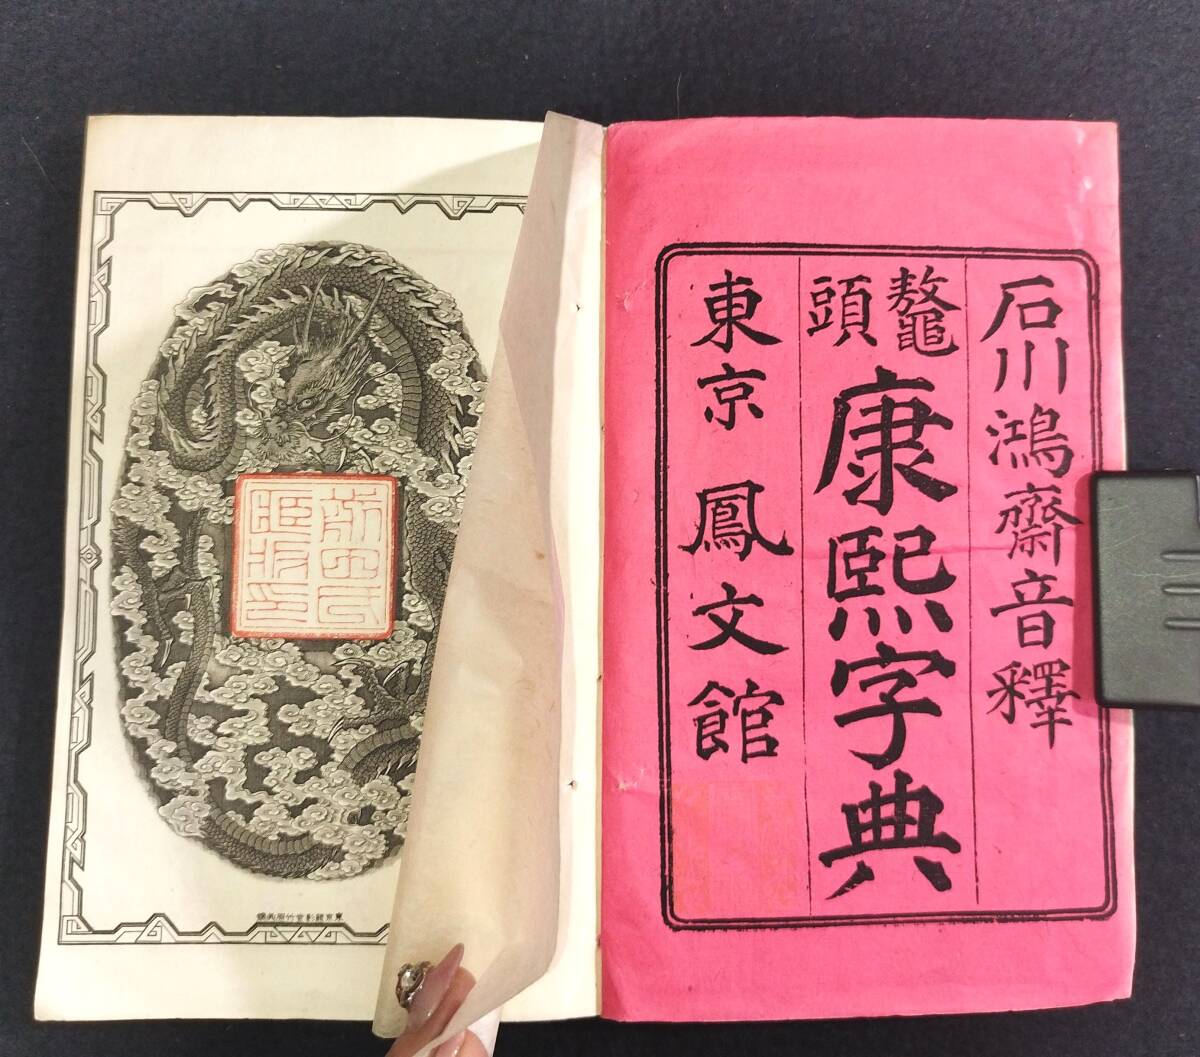 石川鴻齋音釋
鼇頭
康熙字典
東京鳳文館